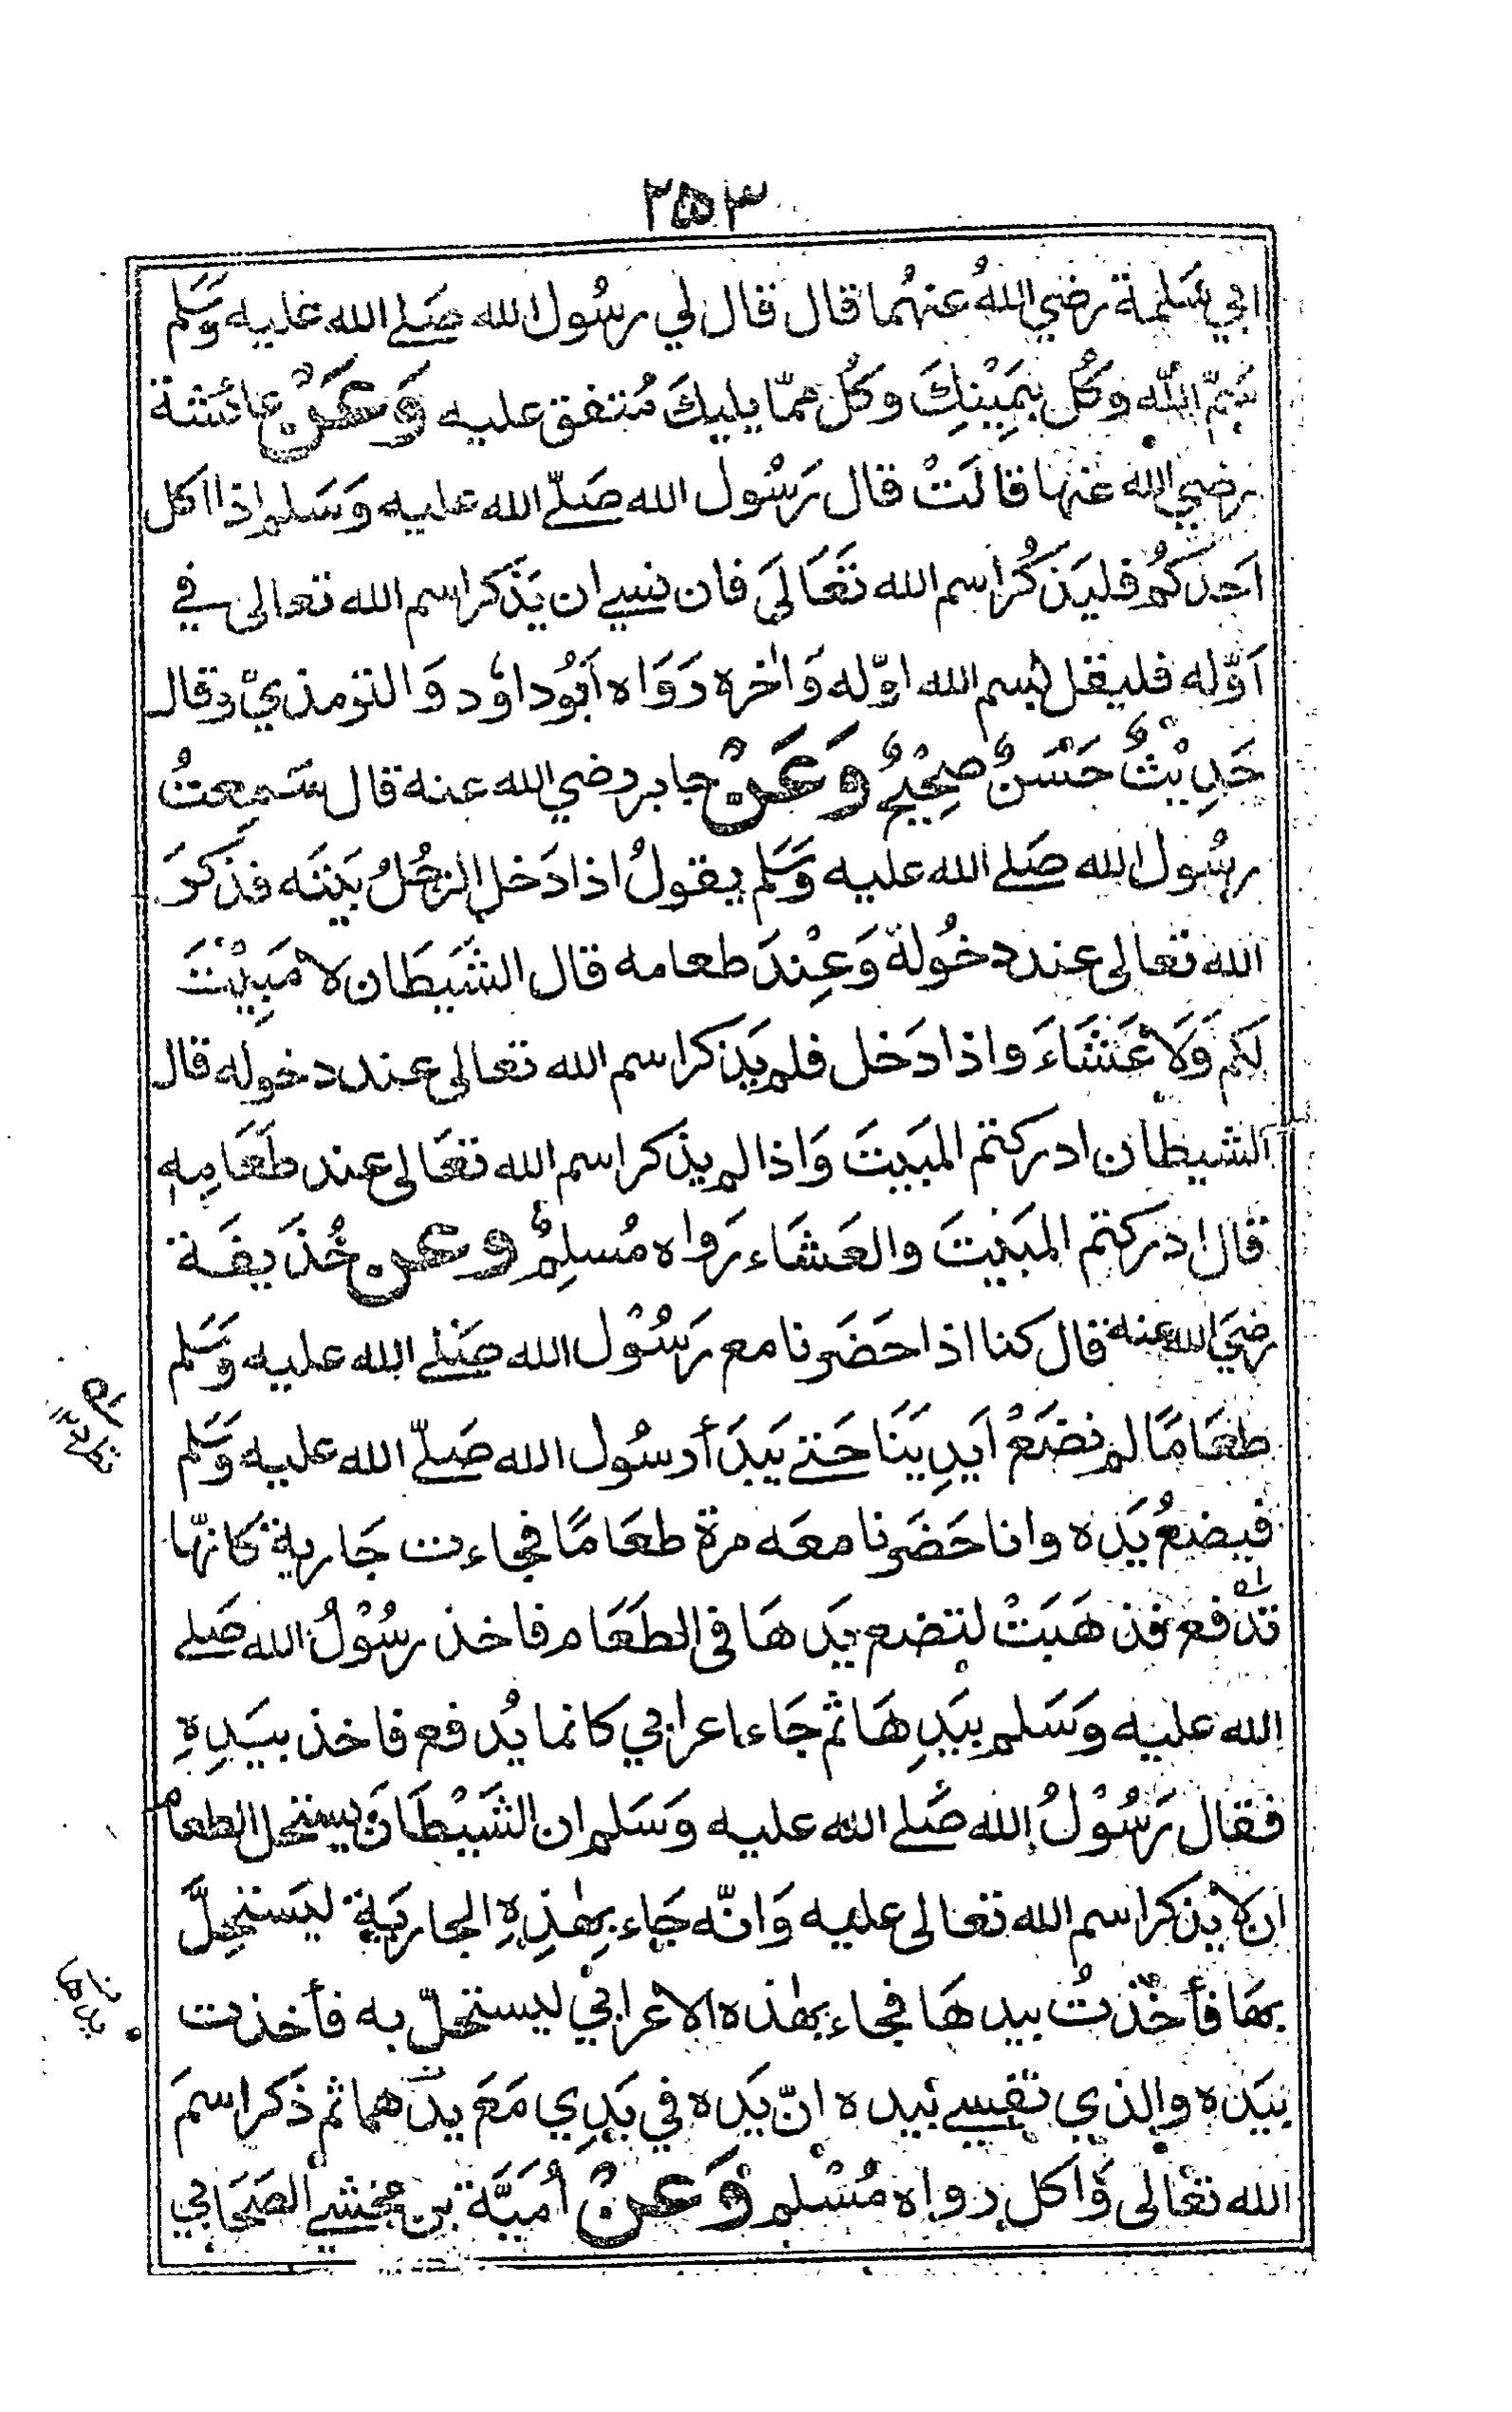 ٢٥٣
ابي سَلمة رضي اللهُ عنهُما قال قال لي رسُول الله صَلے الله عليه وَسَلم
سَمِّ اللّٰه وكُل بِيَمِيْنِكَ وكُل ممّا يليكَ مُتفق عليه وَعَنْ عائشة
رضي الله عنها قالَتْ قال رَسُول الله صَلّے الله عليه وَسَلم اذا اكل
اَحدَكُم فليَذكُر اسم الله تَعَالَى فان نسي ان يَذكر اسم الله تعالى في
اَوّله فليقل بسم الله اوّله وَاٰخره رَوَاه اَبُوداوٗد وَالترمذيّ وقال
حَدِيْثٌ حَسَنٌ صَحِيْحٌ وَعَنْ جابر رضي الله عنه قال سَمِعتُ
رسُول الله صَلے الله عليه وَسَلم يقولُ اذا دَخل الرجُلُ بَيتَه فذكرَ
الله تعالى عند دخُولة وَعِنْدَ طعامه قال الشَيطَان لا مَبِيْتَ
لكم وَلَا عَشَاءَ واذا دَخل فلم يَذكر اسم الله تعالى عند دخوله قال
الشيطان ادركتم المَبيتَ وَاذا لم يذكر اسم الله تعَالى عند طَعَامِه
قال ادركتم المَبيتَ والعَشَاء رَواه مُسلِمٌ وعن حُذَيفَة
رضيَ الله عنه قال كنا اذا حَضَرنا مع رَسُوْل الله صَلے الله عليه وَسَلم
طعَامًا لم نضَعْ اَيدِيَنَا حَتے يَبدَأ رسُول الله صَلّے الله عليه وَسَلم
فيضعُ يَدَه وانا حَضَرنا معَه مرة طعَامًا فجاءت جَارية كانهّا
تدفع فذهَبَتْ لتضع يَدهَا فى الطَعَام فاخذ رسُوْلُ الله صَلے
الله عليه وَسَلم بيَدِهَا ثم جَاء اعرابي كانما يُدفع فاخذ بيَدِهِ
فقال رَسُوْلُ الله صَلے الله عليه وَسَلم ان الشَيْطَانَ يستحل الطعام
ان لا يذكر اسم الله تعالى عليه وَانّه جَاء بِهٰذِهِ الجاريَة ليَستحِلَّ
بهَا فأخَذتُ بيدهَا فجاء بهٰذه الاعرابي ليستحلّ به فأخذت
بيَدَه والذي نفسے بيده انّ يَدَه في يَدِي مَعَ يدَهما ثم ذَكر اسمَ
الله تعَالى وَاكل رواه مُسْلم وَعَنْ اُمَيَّة بن مخشے الصَحَابي